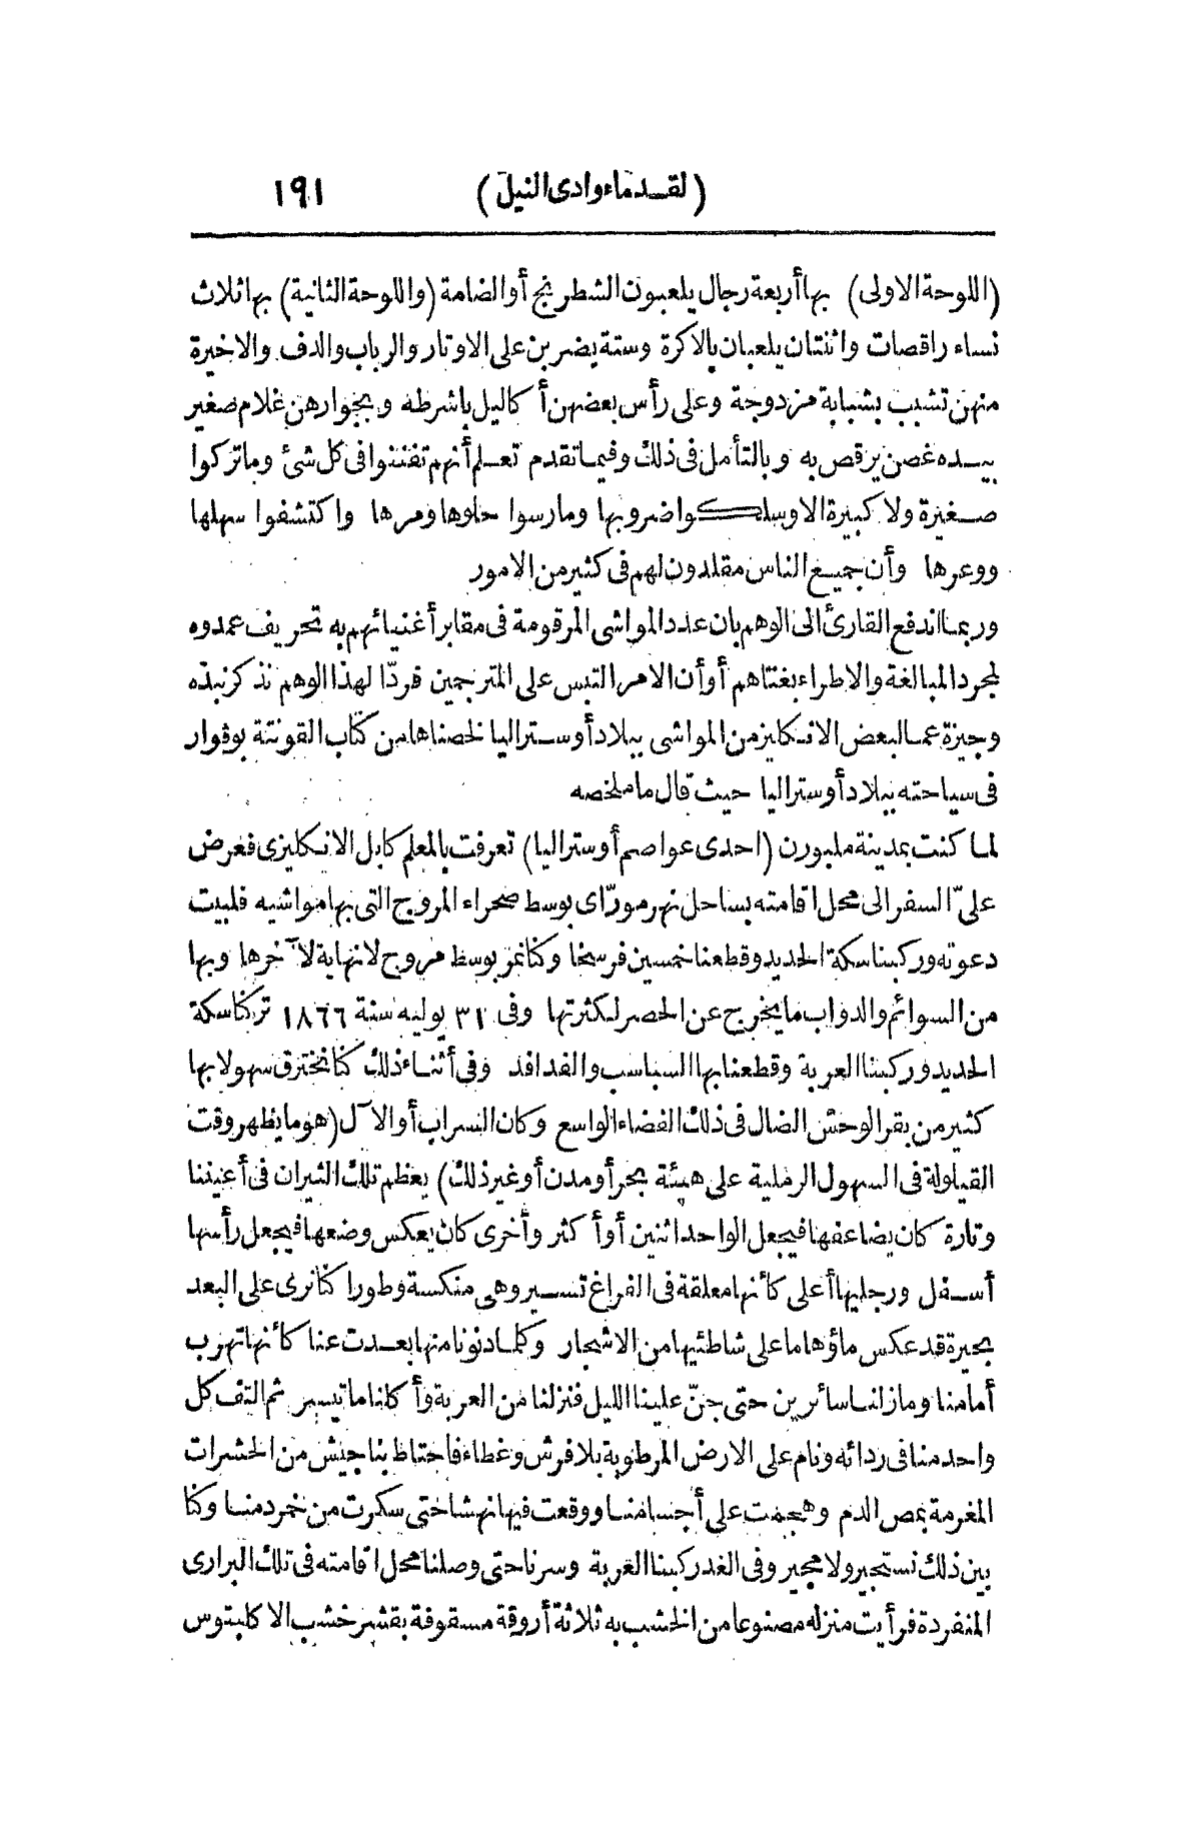 (لقدماء وادى النيل) ١٩١
(اللوحة الاولى) بها أربعة رجال يلعبون الشطرنج أو الضامة (واللوحة الثانية) بها ثلاث
نساء راقصات واثنتان يلعبان بالاكرة وستة يضربن على الاوتار والرباب والدف والاخيرة
منهن تشبب بشبابة مزدوجة وعلى رأس بعضهن أكاليل باشرطه وبجوارهن غلام صغير
بيده غصن يرقص به وبالتأمل فى ذلك وفيما تقدم تعلم أنهم تفننوا فى كل شئ وما تركوا
صغيرة ولا كبيرة الا وسلكوا ضروبها ومارسوا حلوها ومرها واكتشفوا سهلها
ووعرها وأن جميع الناس مقلدون لهم فى كثير من الامور
وربما اندفع القارئ الى الوهم بان عدد المواشى المرقومة فى مقابر أغنيائهم به تحريف عمدوه
لمجرد المبالغة والاطراء بغنتاهم أو أن الامر التبس على المترجمين فردّا لهذا الوهم نذكر نبذه
وجيزة عما لبعض الانكليز من المواشى ببلاد أوستراليا لخصناها من كتاب القونتة بوفوار
فى سياحته ببلاد أوستراليا حيث قال ما ملخصه
لما كنت بمدينة ملبورن (احدى عواصم أوستراليا) تعرفت بالمعلم كابل الانكليزى فعرض
علىّ السفر الى محل اقامته بساحل نهر مورّاى بوسط صحراء المروج التى بها مواشيه فلبيت
دعوته وركبنا سكة الحديد وقطعنا خمسين فرسخا وكنا نمر بوسط مروج لا نهاية لآخرها وبها
من السوائم والدواب ما يخرج عن الحصر لكثرتها وفى ٣١ يوليه سنة ١٨٦٦ تركنا سكة
الحديد وركبنا العربة وقطعنا بها السباسب والفدافد وفى أثناء ذلك كنا نخترق سهولا بها
كثير من بقر الوحش الضال فى ذلك الفضاء الواسع وكان السراب أو الآل (هو ما يظهر وقت
القيلولة فى السهول الرملية على هيئة بحر أو مدن أو غير ذلك) يعظم تلك الثيران فى أعيننا
وتارة كان يضاعفها فيجعل الواحد اثنين أو أكثر وأخرى كان يعكس وضعها فيجعل رأسها
أسفل ورجليها أعلى كأنها معلقة فى الفراغ تسير وهى منكسة وطورا كنا نرى على البعد
بحيرة قد عكس ماؤها ما على شاطئيها من الاشجار وكلما دنونا منها بعدت عنا كأنها تهرب
أمامنا وما زلنا سائرين حتى جنّ علينا الليل فنزلنا من العربة وأكلنا ما تيسر ثم التف كل
واحد منا فى ردائه ونام على الارض المرطوبة بلا فرش وغطاء فاحتاط بنا جيش من الحشرات
المغرمة بمص الدم وهجمت على أجسامنا ووقعت فيها نهشا حتى سكرت من خمر دمنا وكنا
بين ذلك نستجير ولا مجير وفى الغد ركبنا العربة وسرنا حتى وصلنا محل اقامته فى تلك البرارى
المنفردة فرأيت منزله مصنوعا من الخشب به ثلاثة أروقة مسقوفة بقشر خشب الاكلبتوس